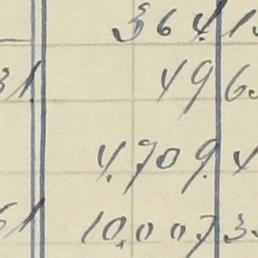 364 15
31 49 65
4,709. 4
51 10,007 3